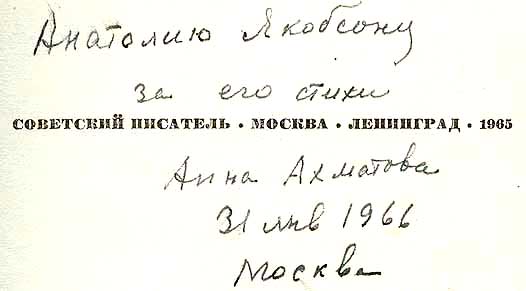 Анатолию Якобсону
за его стихи
СОВЕТСКИЙ ПИСАТЕЛЬ • МОСКВА • ЛЕНИНГРАД • 1965
Анна Ахматова
31 янв 1966
Москва